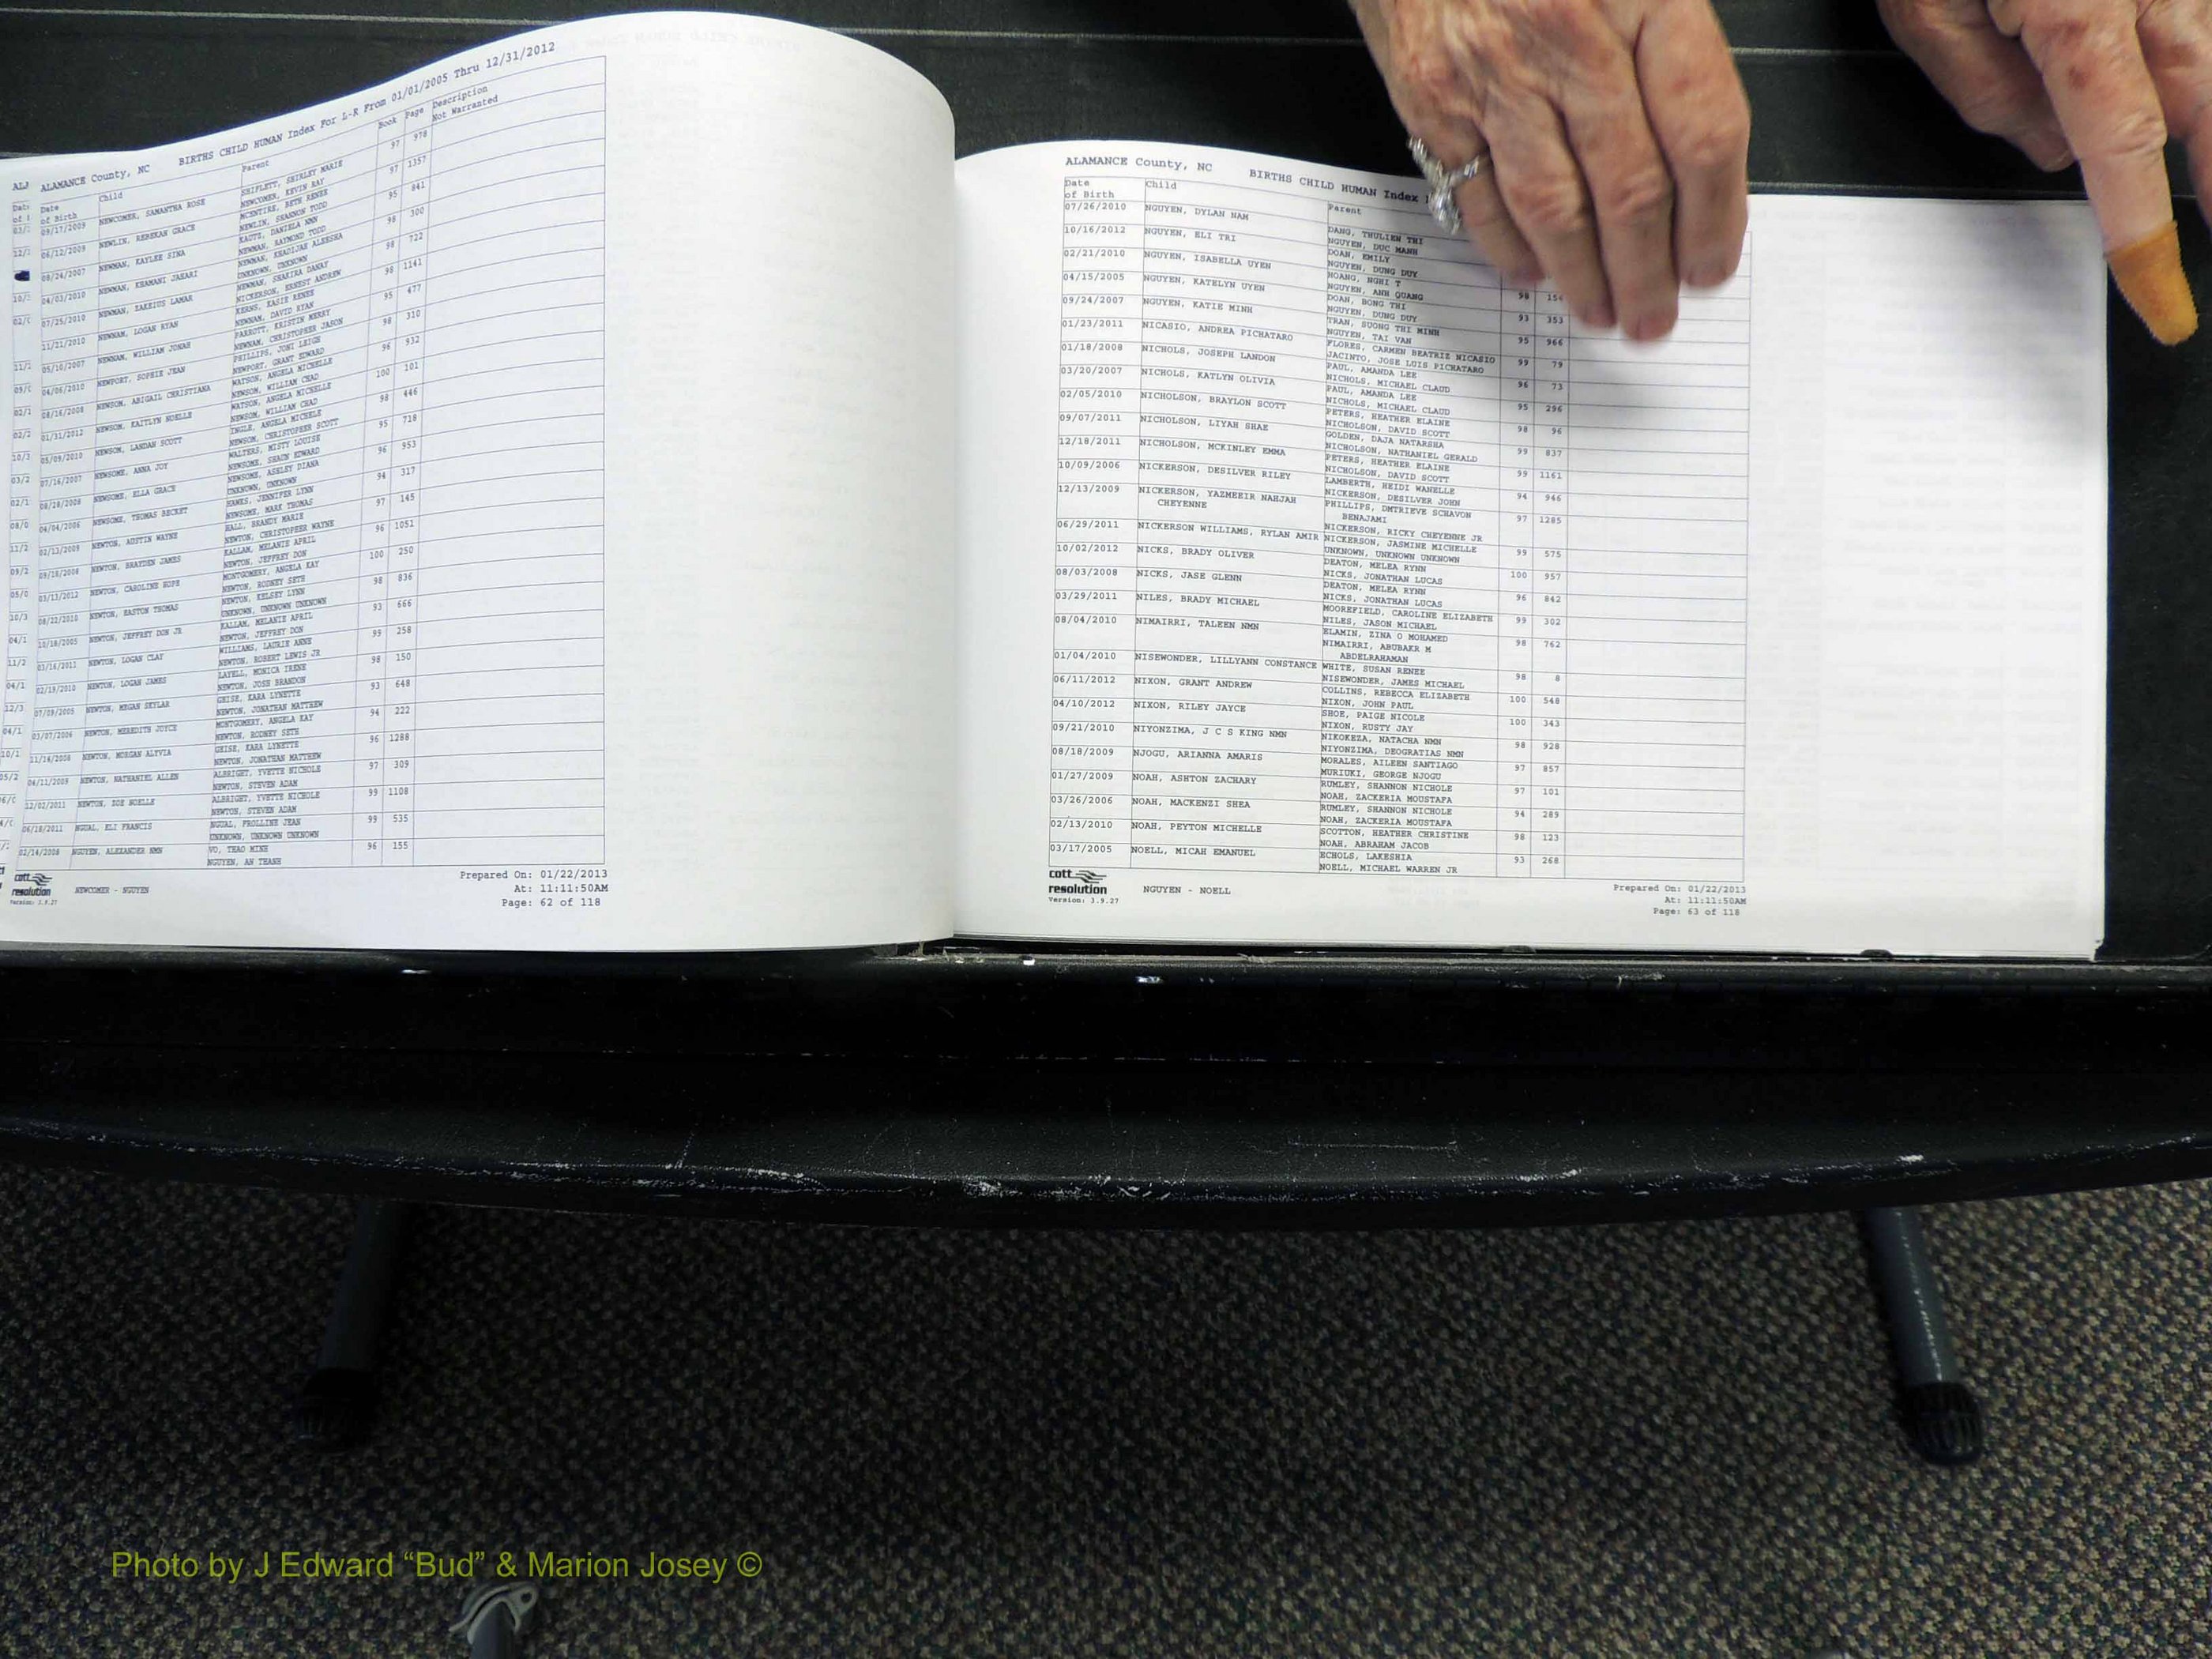 ALAMANCE County, NC BIRTHS CHILD HUMAN Index For L-R From 01/01/2005 Thru 12/31/2012
Date of Birth Child Parent Book Page Description Not Warranted
09/17/2009 NEWCOMER, SAMANTHA ROSE SHIFLETT, SHIRLEY MARIE 97 978
NEWCOMER, KEVIN RAY
06/12/2009 NEWLIN, REBEKAH GRACE MCENTIRE, BETH RENEE 97 1357
NEWLIN, SHANNON TODD
08/24/2007 NEWMAN, KAYLEE SINA KAUTZ, DANIELA NMN 95 841
NEWMAN, RAYMOND TODD
04/03/2010 NEWMAN, KHAMANI JAHARI NEWMAN, KHADIJAH ALEESHA 98 300
UNKNOWN, UNKNOWN
07/25/2010 NEWMAN, ZAKEIUS LAMAR NEWMAN, SHAKIRA DANAY 98 722
NICKERSON, ERNEST ANDREW
11/21/2010 NEWNAM, LOGAN RYAN KERNS, KASIE RENEE 98 1141
NEWNAM, DAVID RYAN
05/10/2007 NEWNAM, WILLIAM JONAH PARROTT, KRISTIN MERRY 95 477
NEWNAM, CHRISTOPHER JASON
04/06/2010 NEWPORT, SOPHIE JEAN PHILLIPS, JONI LEIGH 98 310
NEWPORT, GRANT EDWARD
08/16/2008 NEWSOM, ABIGAIL CHRISTIANA WATSON, ANGELA MICHELLE 96 932
NEWSOM, WILLIAM CHAD
01/31/2012 NEWSOM, KAITLYN NOELLE WATSON, ANGELA MICHELLE 100 101
NEWSOM, WILLIAM CHAD
05/09/2010 NEWSOM, LANDAN SCOTT INGLE, ANGELA MICHELE 98 446
NEWSOM, CHRISTOPHER SCOTT
07/16/2007 NEWSOME, ANNA JOY WALTERS, MISTY LOUISE 95 718
NEWSOME, SHAUN EDWARD
08/28/2008 NEWSOME, ELLA GRACE NEWSOME, ASHLEY DIANA 96 953
UNKNOWN, UNKNOWN
04/04/2006 NEWSOME, THOMAS BECKET HAWKS, JENNIFER LYNN 94 317
NEWSOME, MARK THOMAS
02/13/2009 NEWTON, AUSTIN WAYNE HALL, BRANDY MARIE 97 145
NEWTON, CHRISTOPHER WAYNE
09/18/2008 NEWTON, BRAYDEN JAMES KALLAM, MELANIE APRIL 96 1051
NEWTON, JEFFREY DON
03/13/2012 NEWTON, CAROLINE HOPE MONTGOMERY, ANGELA KAY 100 250
NEWTON, RODNEY SETH
08/22/2010 NEWTON, EASTON THOMAS NEWTON, KELSEY LYNN 98 836
UNKNOWN, UNKNOWN UNKNOWN
10/18/2005 NEWTON, JEFFREY DON JR KALLAM, MELANIE APRIL 93 666
NEWTON, JEFFREY DON
03/16/2011 NEWTON, LOGAN CLAY WILLIAMS, LAURIE ANNE 99 258
NEWTON, ROBERT LEWIS JR
02/19/2010 NEWTON, LOGAN JAMES LAYELL, MONICA IRENE 98 150
NEWTON, JOSH BRANDON
07/09/2005 NEWTON, MEGAN SKYLAR GEISE, KARA LYNETTE 93 648
NEWTON, JONATHAN MATTHEW
03/07/2006 NEWTON, MEREDITH JOYCE MONTGOMERY, ANGELA KAY 94 222
NEWTON, RODNEY SETH
11/14/2008 NEWTON, MORGAN ALYVIA GEISE, KARA LYNETTE 96 1288
NEWTON, JONATHAN MATTHEW
04/11/2009 NEWTON, NATHANIEL ALLEN ALBRIGHT, YVETTE NICHOLE 97 309
NEWTON, STEVEN ADAM
12/02/2011 NEWTON, ZOE NOELLE ALBRIGHT, YVETTE NICHOLE 99 1108
NEWTON, STEVEN ADAM
06/18/2011 NGUAL, ELI FRANCIS NGUAL, FROLLINE JEAN 99 535
UNKNOWN, UNKNOWN UNKNOWN
02/14/2008 NGUYEN, ALEXANDER NMN VO, THAO MINH 96 155
NGUYEN, AN THANH
cott resolution
Version: 3.9.27
NEWCOMER - NGUYEN
Prepared On: 01/22/2013
At: 11:11:50AM
Page: 62 of 118
ALAMANCE County, NC BIRTHS CHILD HUMAN Index
Date of Birth Child Parent
07/26/2010 NGUYEN, DYLAN NAM DANG, THULIEN THI
NGUYEN, DUC MANH
10/16/2012 NGUYEN, ELI TRI DOAN, EMILY
NGUYEN, DUNG DUY
02/21/2010 NGUYEN, ISABELLA UYEN HOANG, NGHI T 98
NGUYEN, ANH QUANG
04/15/2005 NGUYEN, KATELYN UYEN DOAN, BONG THI 93 353
NGUYEN, DUNG DUY
09/24/2007 NGUYEN, KATIE MINH TRAN, SUONG THI MINH 95 966
NGUYEN, TAI VAN
01/23/2011 NICASIO, ANDREA PICHATARO FLORES, CARMEN BEATRIZ NICASIO 99 79
JACINTO, JOSE LUIS PICHATARO
01/18/2008 NICHOLS, JOSEPH LANDON PAUL, AMANDA LEE 96 73
NICHOLS, MICHAEL CLAUD
03/20/2007 NICHOLS, KATLYN OLIVIA PAUL, AMANDA LEE 95 296
NICHOLS, MICHAEL CLAUD
02/05/2010 NICHOLSON, BRAYLON SCOTT PETERS, HEATHER ELAINE 98 96
NICHOLSON, DAVID SCOTT
09/07/2011 NICHOLSON, LIYAH SHAE GOLDEN, DAJA NATARSHA 99 837
NICHOLSON, NATHANIEL GERALD
12/18/2011 NICHOLSON, MCKINLEY EMMA PETERS, HEATHER ELAINE 99 1161
NICHOLSON, DAVID SCOTT
10/09/2006 NICKERSON, DESILVER RILEY LAMBERTH, HEIDI WANELLE 94 946
NICKERSON, DESILVER JOHN
12/13/2009 NICKERSON, YAZMEEIR NAHJAH CHEYENNE PHILLIPS, DMTRIEVE SCHAVON BENAJAMI 97 1285
NICKERSON, RICKY CHEYENNE JR
06/29/2011 NICKERSON WILLIAMS, RYLAN AMIR NICKERSON, JASMINE MICHELLE 99 575
UNKNOWN, UNKNOWN UNKNOWN
10/02/2012 NICKS, BRADY OLIVER DEATON, MELEA RYNN 100 957
NICKS, JONATHAN LUCAS
08/03/2008 NICKS, JASE GLENN DEATON, MELEA RYNN 96 842
NICKS, JONATHAN LUCAS
03/29/2011 NILES, BRADY MICHAEL MOOREFIELD, CAROLINE ELIZABETH 99 302
NILES, JASON MICHAEL
08/04/2010 NIMAIRRI, TALEEN NMN ELAMIN, ZINA O MOHAMED 98 762
NIMAIRRI, ABUBAKR M ABDELRAHAMAN
01/04/2010 NISEWONDER, LILLYANN CONSTANCE WHITE, SUSAN RENEE 98 8
NISEWONDER, JAMES MICHAEL
06/11/2012 NIXON, GRANT ANDREW COLLINS, REBECCA ELIZABETH 100 548
NIXON, JOHN PAUL
04/10/2012 NIXON, RILEY JAYCE SHOE, PAIGE NICOLE 100 343
NIXON, RUSTY JAY
09/21/2010 NIYONZIMA, J C S KING NMN NIKOKEZA, NATACHA NMN 98 928
NIYONZIMA, DEOGRATIAS NMN
08/18/2009 NJOGU, ARIANNA AMARIS MORALES, AILEEN SANTIAGO 97 857
MURIUKI, GEORGE NJOGU
01/27/2009 NOAH, ASHTON ZACHARY RUMLEY, SHANNON NICHOLE 97 101
NOAH, ZACKERIA MOUSTAFA
03/26/2006 NOAH, MACKENZI SHEA RUMLEY, SHANNON NICHOLE 94 289
NOAH, ZACKERIA MOUSTAFA
02/13/2010 NOAH, PEYTON MICHELLE SCOTTON, HEATHER CHRISTINE 98 123
NOAH, ABRAHAM JACOB
03/17/2005 NOELL, MICAH EMANUEL ECHOLS, LAKESHIA 93 268
NOELL, MICHAEL WARREN JR
cott resolution
Version: 3.9.27
NGUYEN - NOELL
Prepared On: 01/22/2013
At: 11:11:50AM
Page: 63 of 118
Photo by J Edward “Bud” & Marion Josey ©